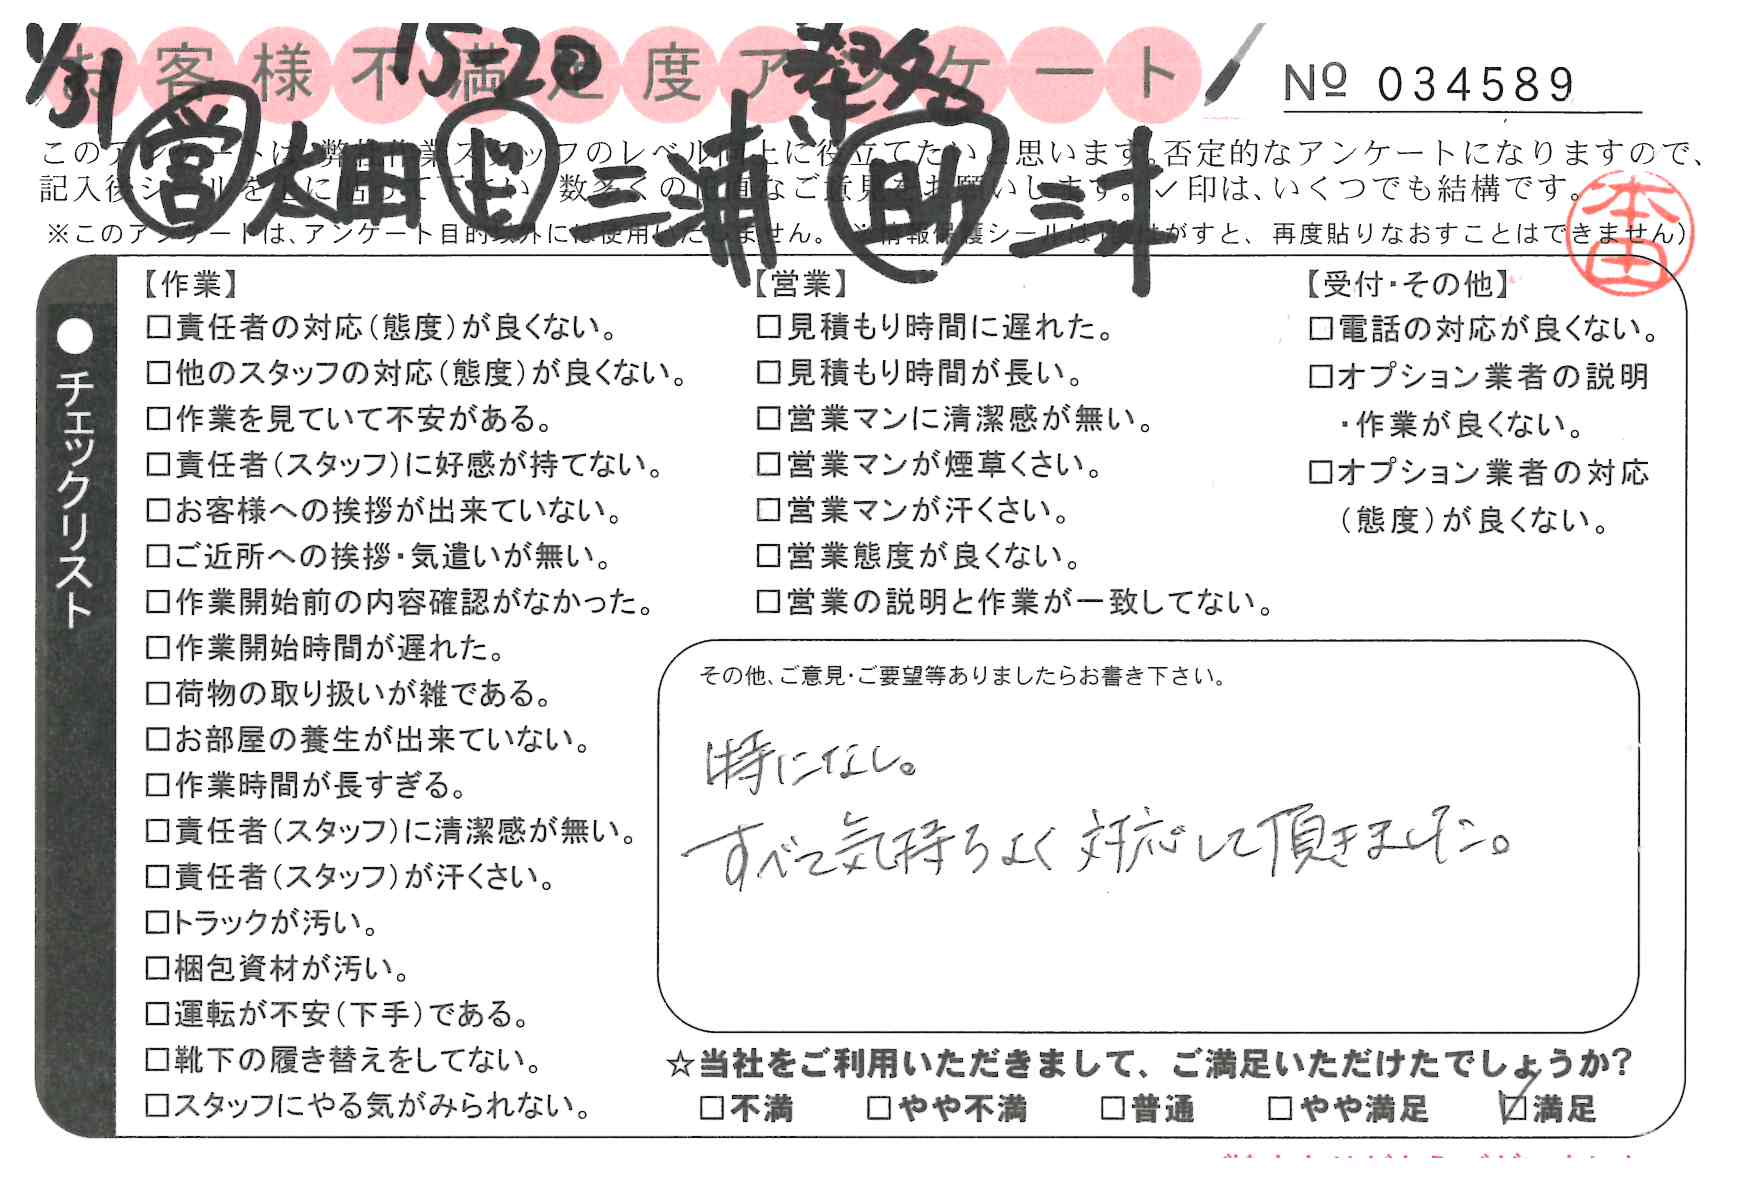 お客様不満足度アンケート
1/31 15-20
№ 034589
営 太田 上 三浦 助 三井
このアンケートは、弊社作業スタッフのレベル向上に役立てたいと思います。否定的なアンケートになりますので、
記入後シールを上に貼って下さい。数多くの正直なご意見をお願いします。✓印は、いくつでも結構です。
※このアンケートは、アンケート目的以外には使用いたしません。(※情報保護シールは1度はがすと、再度貼りなおすことはできません)
本田
●チェックリスト
【作業】
□責任者の対応(態度)が良くない。
□他のスタッフの対応(態度)が良くない。
□作業を見ていて不安がある。
□責任者(スタッフ)に好感が持てない。
□お客様への挨拶が出来ていない。
□ご近所への挨拶・気遣いが無い。
□作業開始前の内容確認がなかった。
□作業開始時間が遅れた。
□荷物の取り扱いが雑である。
□お部屋の養生が出来ていない。
□作業時間が長すぎる。
□責任者(スタッフ)に清潔感が無い。
□責任者(スタッフ)が汗くさい。
□トラックが汚い。
□梱包資材が汚い。
□運転が不安(下手)である。
□靴下の履き替えをしてない。
□スタッフにやる気がみられない。
【営業】
□見積もり時間に遅れた。
□見積もり時間が長い。
□営業マンに清潔感が無い。
□営業マンが煙草くさい。
□営業マンが汗くさい。
□営業態度が良くない。
□営業の説明と作業が一致してない。
【受付・その他】
□電話の対応が良くない。
□オプション業者の説明
・作業が良くない。
□オプション業者の対応
(態度)が良くない。
その他、ご意見・ご要望等ありましたらお書き下さい。
特になし。
すべて気持ちよく対応して頂きました。
☆当社をご利用いただきまして、ご満足いただけたでしょうか?
□不満 □やや不満 □普通 □やや満足 ☑満足